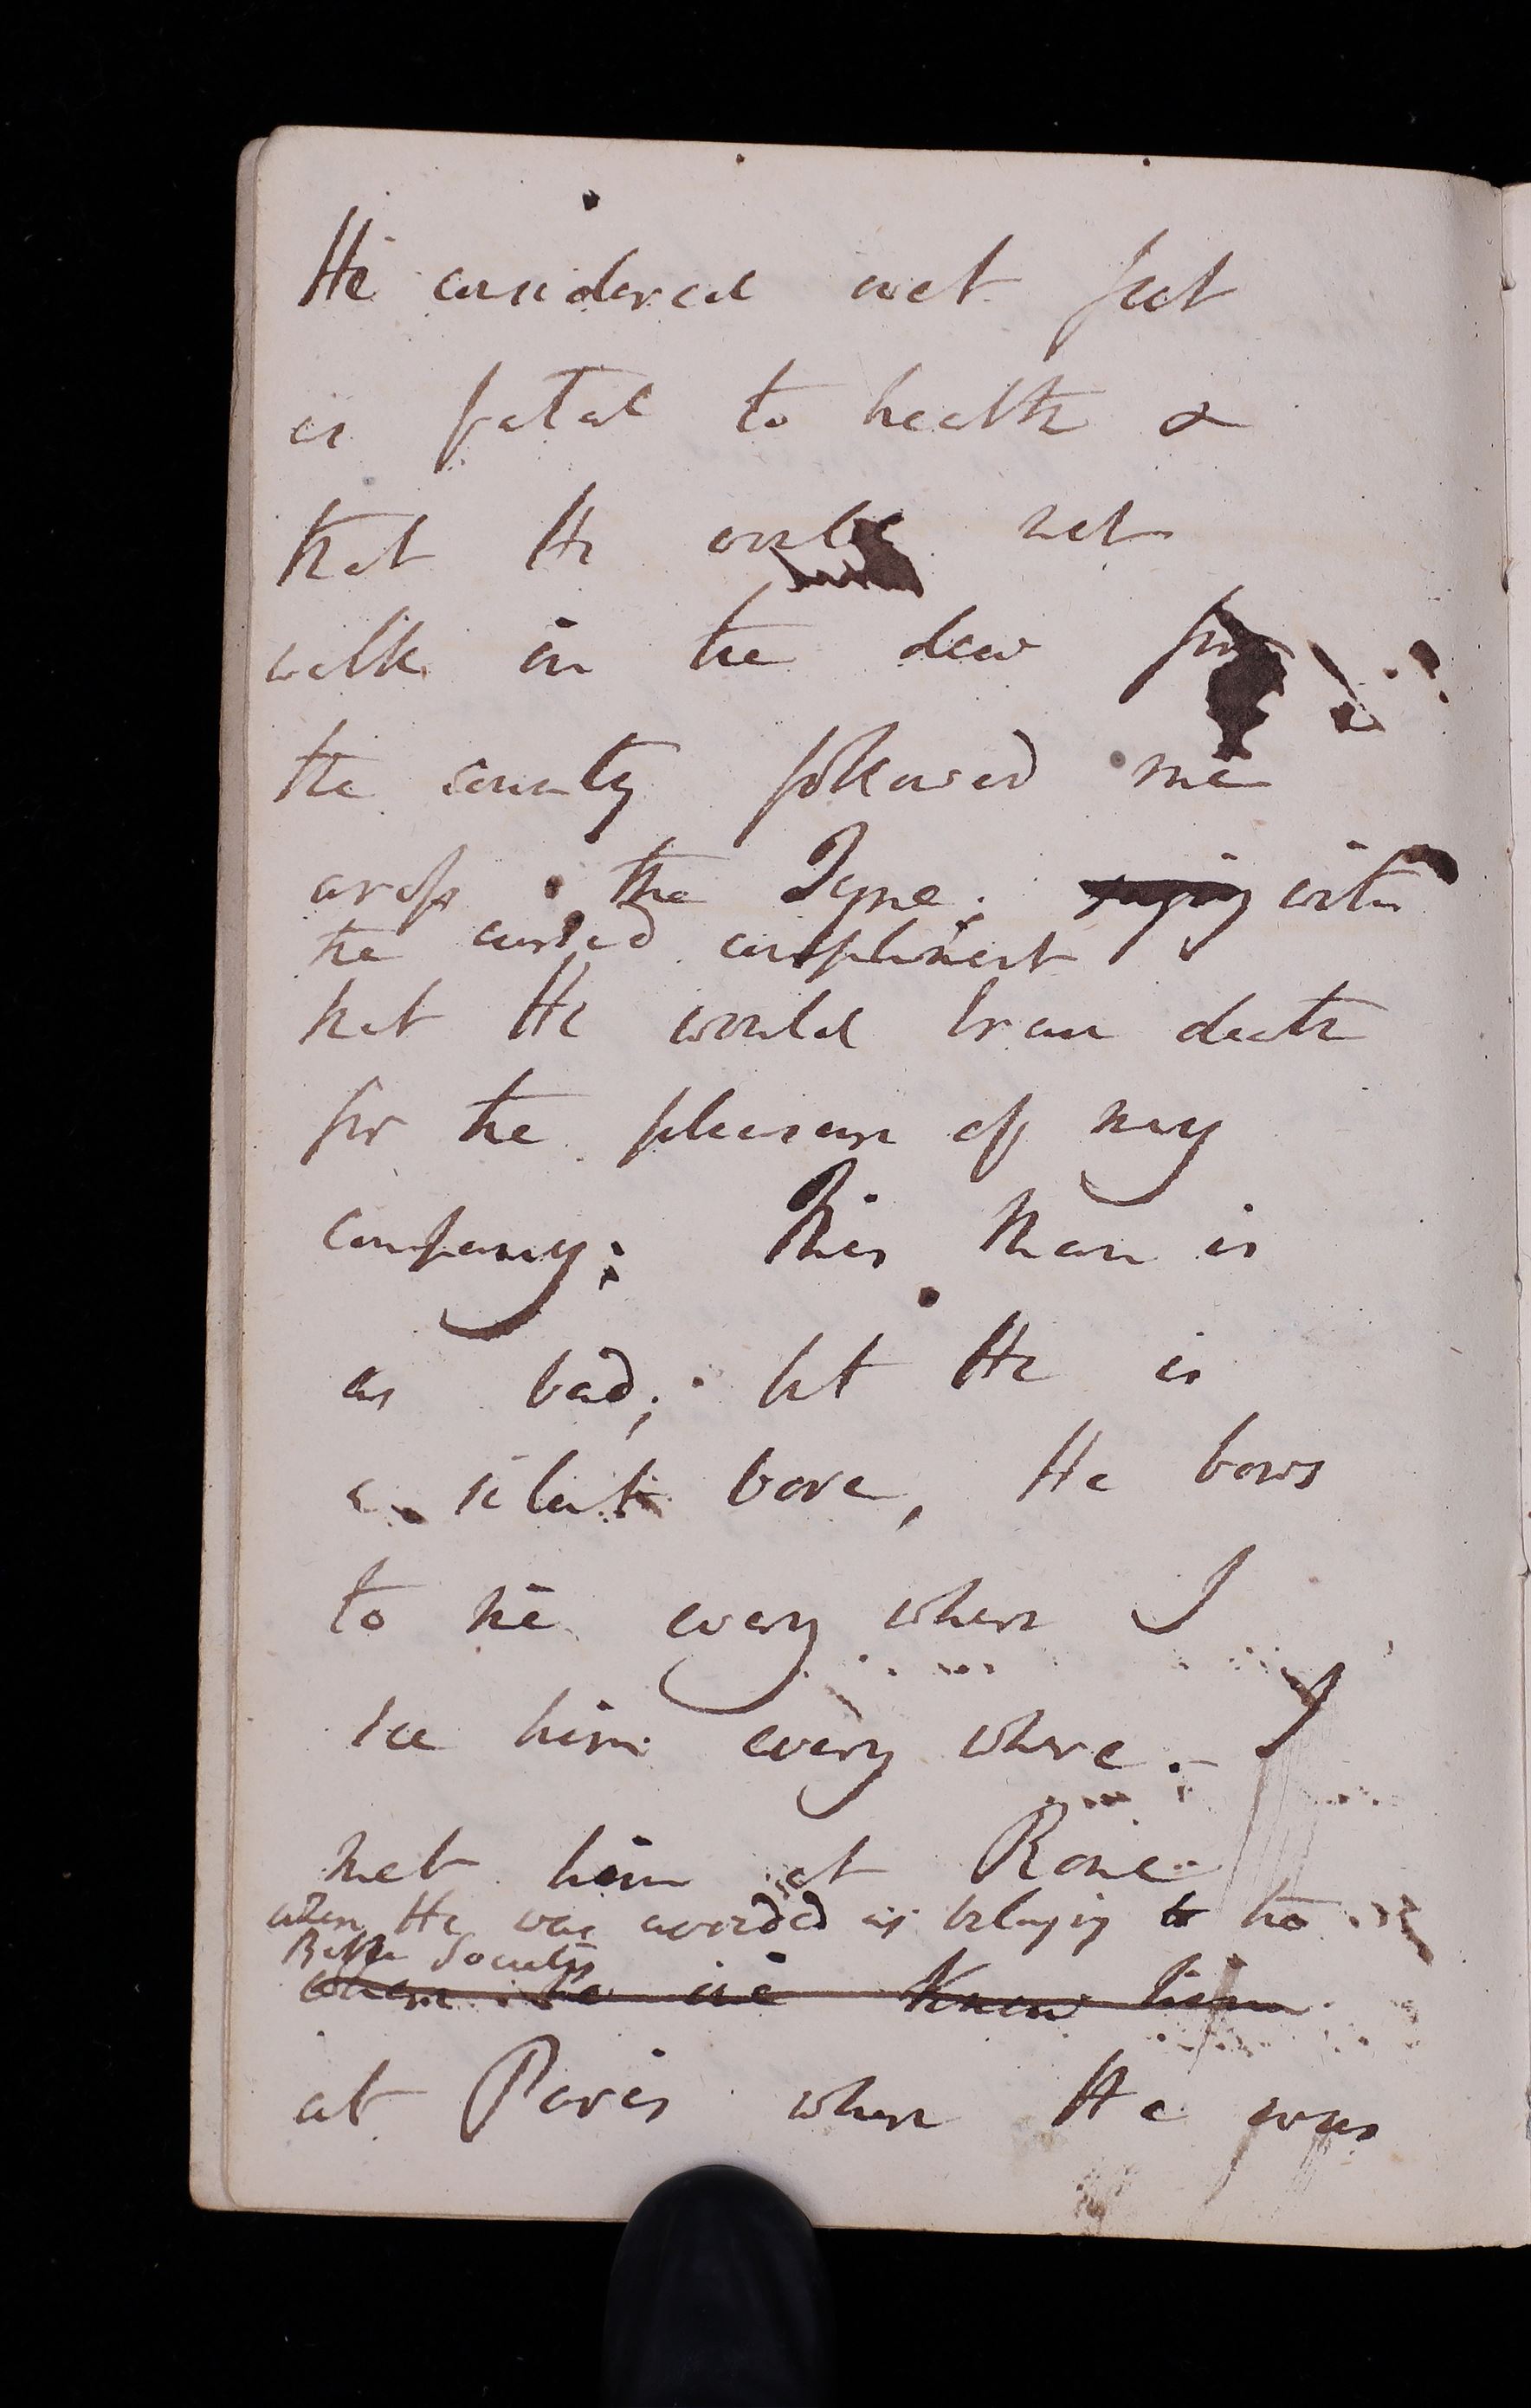 He considered wet feet
as fatal to health &
that He would not
walk in the dew for
the county followed me
across the Tyne; saying with
the cursed compliment
that He would brave death
for the pleasure of my
company; This Man is
as bad; but He is
a silent bore, He bows
to me every where I
see him every where. - I
met him at Rome
when He was avoided as belonging to the
Society
where we knew him
at Paris where He was